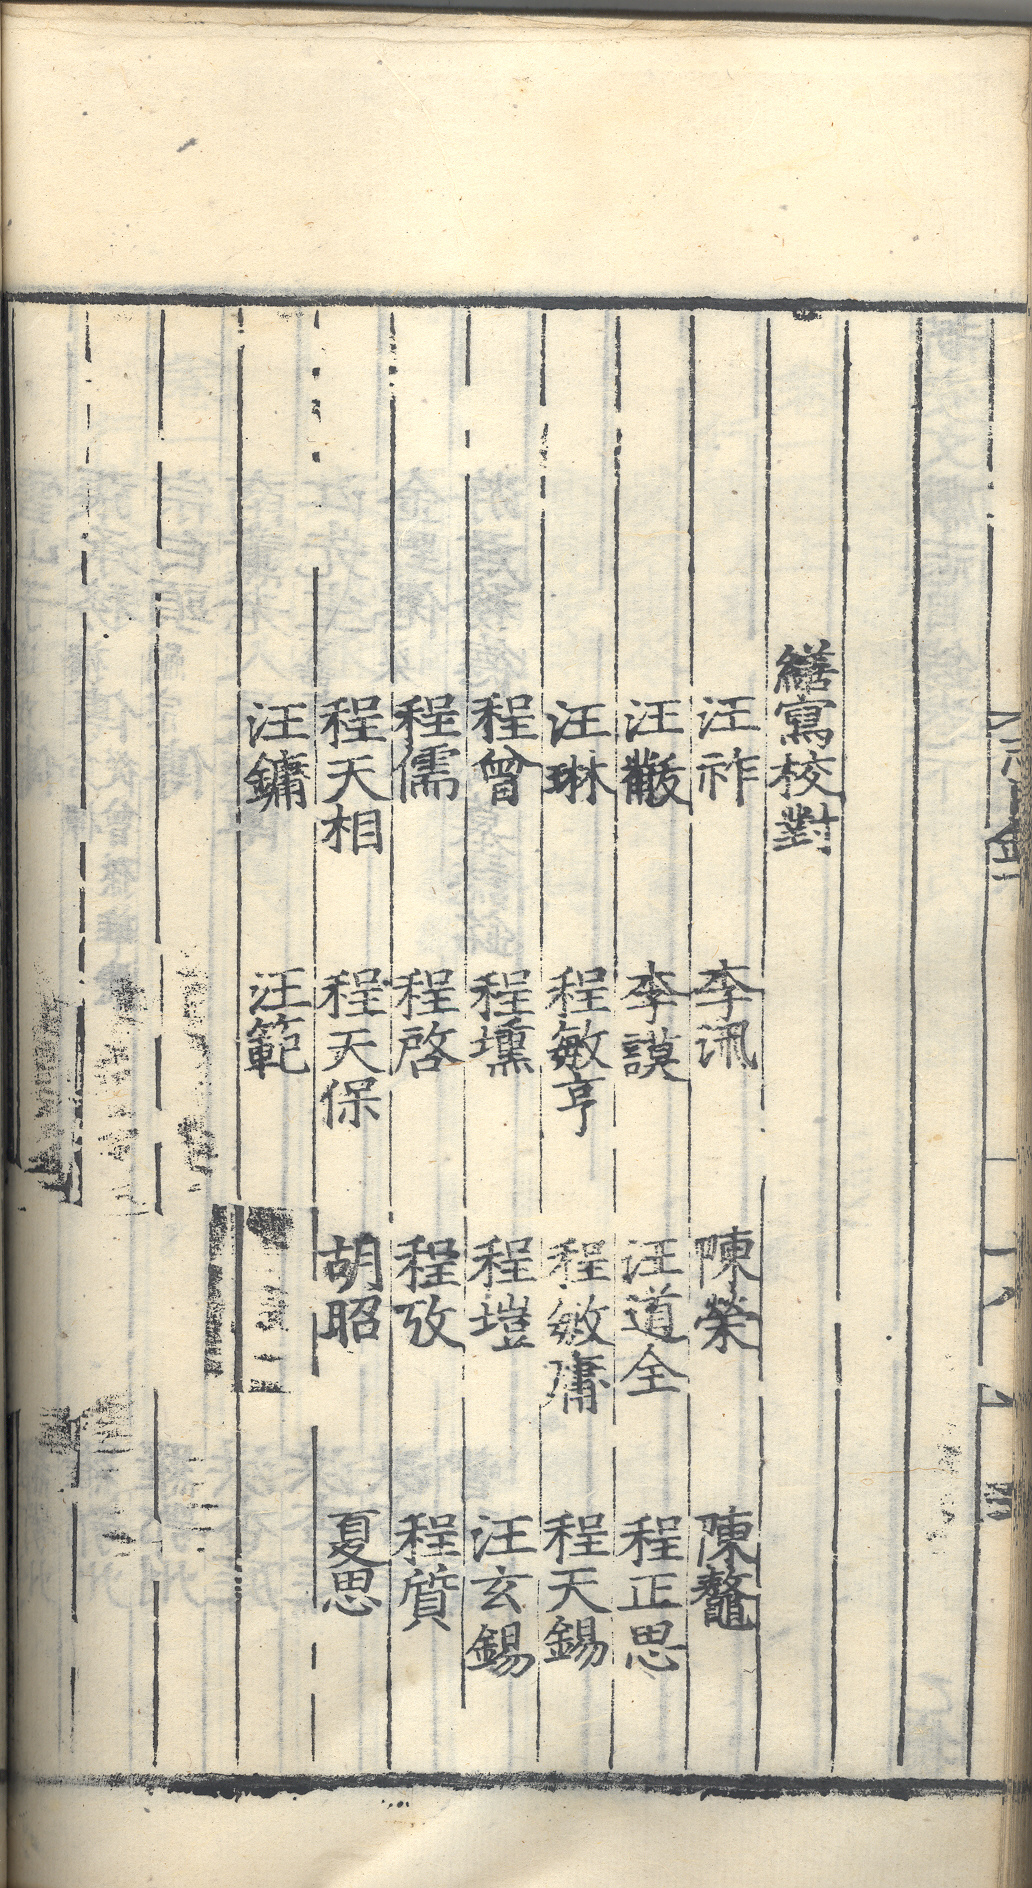 繕寫校對
汪祚 李汛 陳榮 陳鼇
汪 李謨 汪道全 程正思
汪琳 程敏亨 程敏庸 程天錫
程曾 程壎 程塏 汪玄錫
程儒 程啓 程攷 程質
程天相 程天保 胡昭 夏思
汪鏞 汪範